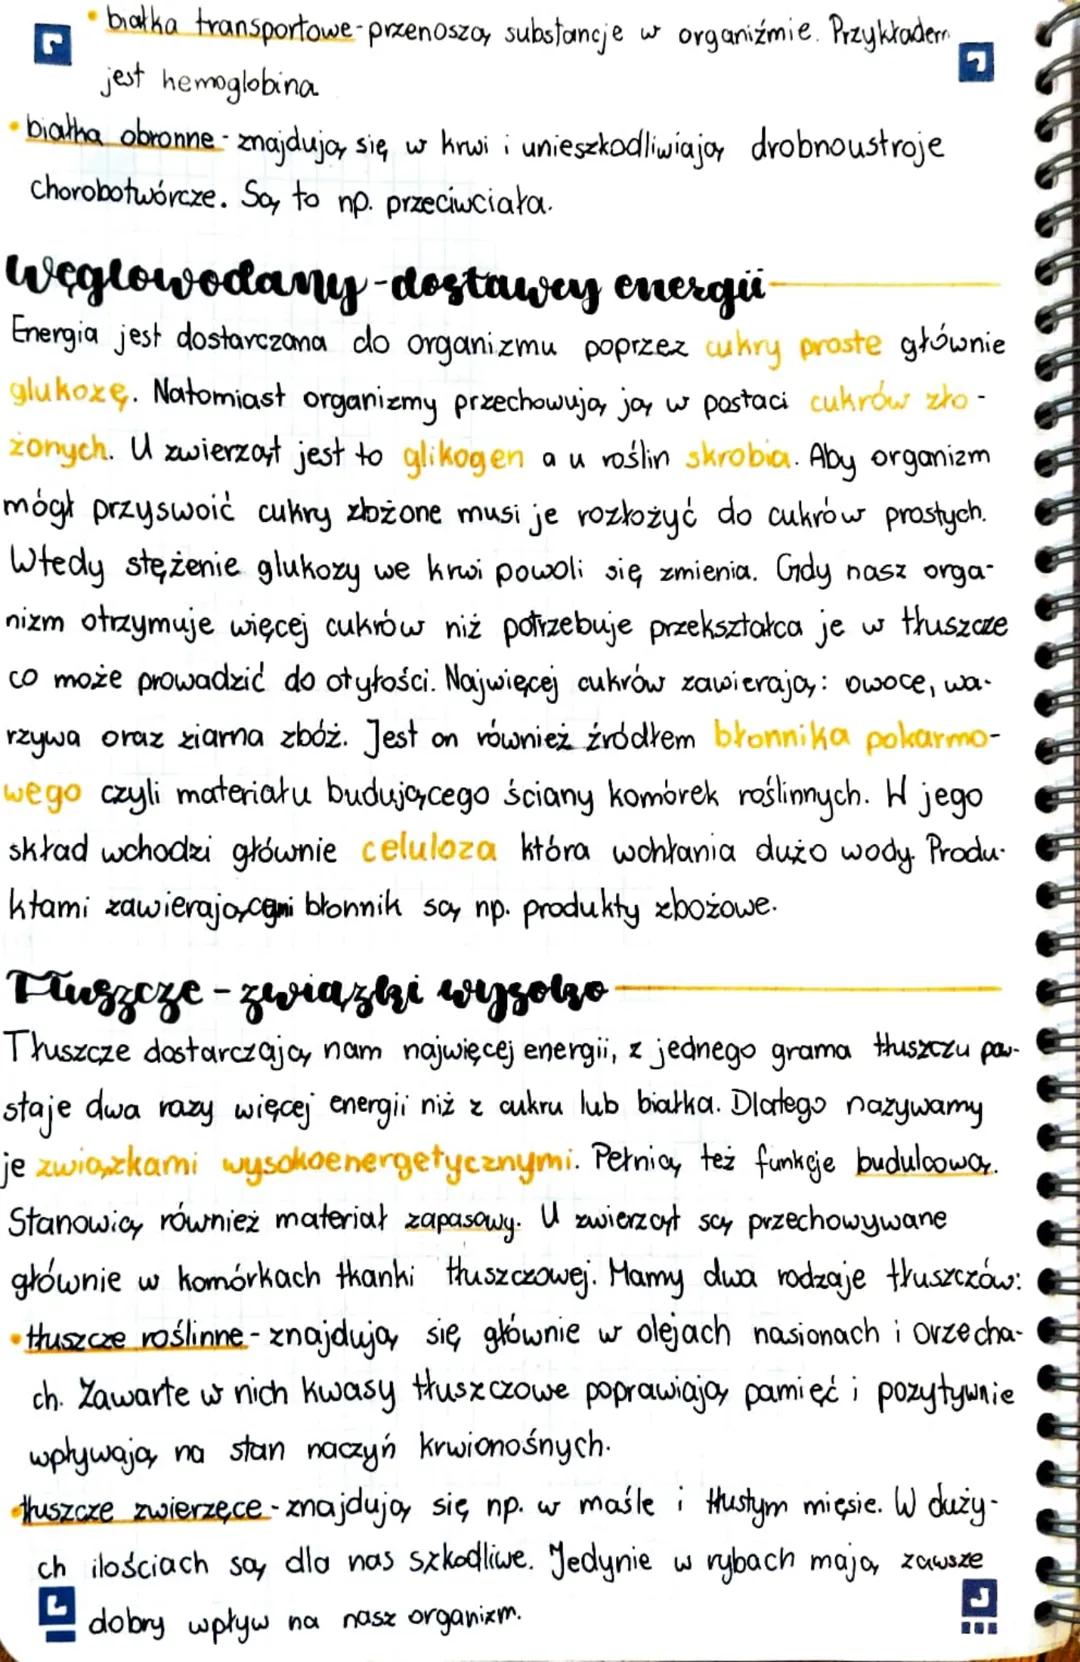 • białka transportowe - przenoszą substancje w organiźmie. Przykładem
jest hemoglobina
• białka obronne - znajdują się w krwi i unieszkodliwiają drobnoustroje
chorobotwórcze. Są to np. przeciwciała.
Węglowodany - dostawcy energii
Energia jest dostarczana do organizmu poprzez cukry proste głównie
glukozę. Natomiast organizmy przechowują ją w postaci cukrów zło-
żonych. U zwierząt jest to glikogen a u roślin skrobia. Aby organizm
mógł przyswoić cukry złożone musi je rozłożyć do cukrów prostych.
Wtedy stężenie glukozy we krwi powoli się zmienia. Gdy nasz orga-
nizm otrzymuje więcej cukrów niż potrzebuje przekształca je w tłuszcze
co może prowadzić do otyłości. Najwięcej cukrów zawierają: owoce, wa-
rzywa oraz ziarna zbóż. Jest on również źródłem błonnika pokarmo-
wego czyli materiału budującego ściany komórek roślinnych. W jego
skład wchodzi głównie celuloza która wchłania dużo wody. Produ-
ktami zawierającymi błonnik są np. produkty zbożowe.
Tłuszcze - związki wysoko
Tłuszcze dostarczają nam najwięcej energii, z jednego grama tłuszczu pow-
staje dwa razy więcej energii niż z cukru lub białka. Dlatego nazywamy
je związkami wysokoenergetycznymi. Pełnią też funkcje budulcową.
Stanowią również materiał zapasowy. U zwierząt są przechowywane
głównie w komórkach tkanki tłuszczowej. Mamy dwa rodzaje tłuszczów:
• tłuszcze roślinne - znajdują się głównie w olejach nasionach i orzecha-
ch. Zawarte w nich kwasy tłuszczowe poprawiają pamięć i pozytywnie
wpływają na stan naczyń krwionośnych.
• tłuszcze zwierzęce - znajdują się np. w maśle i tłustym mięsie. W duży-
ch ilościach są dla nas szkodliwe. Jedynie w rybach mają zawsze
dobry wpływ na nasz organizm.